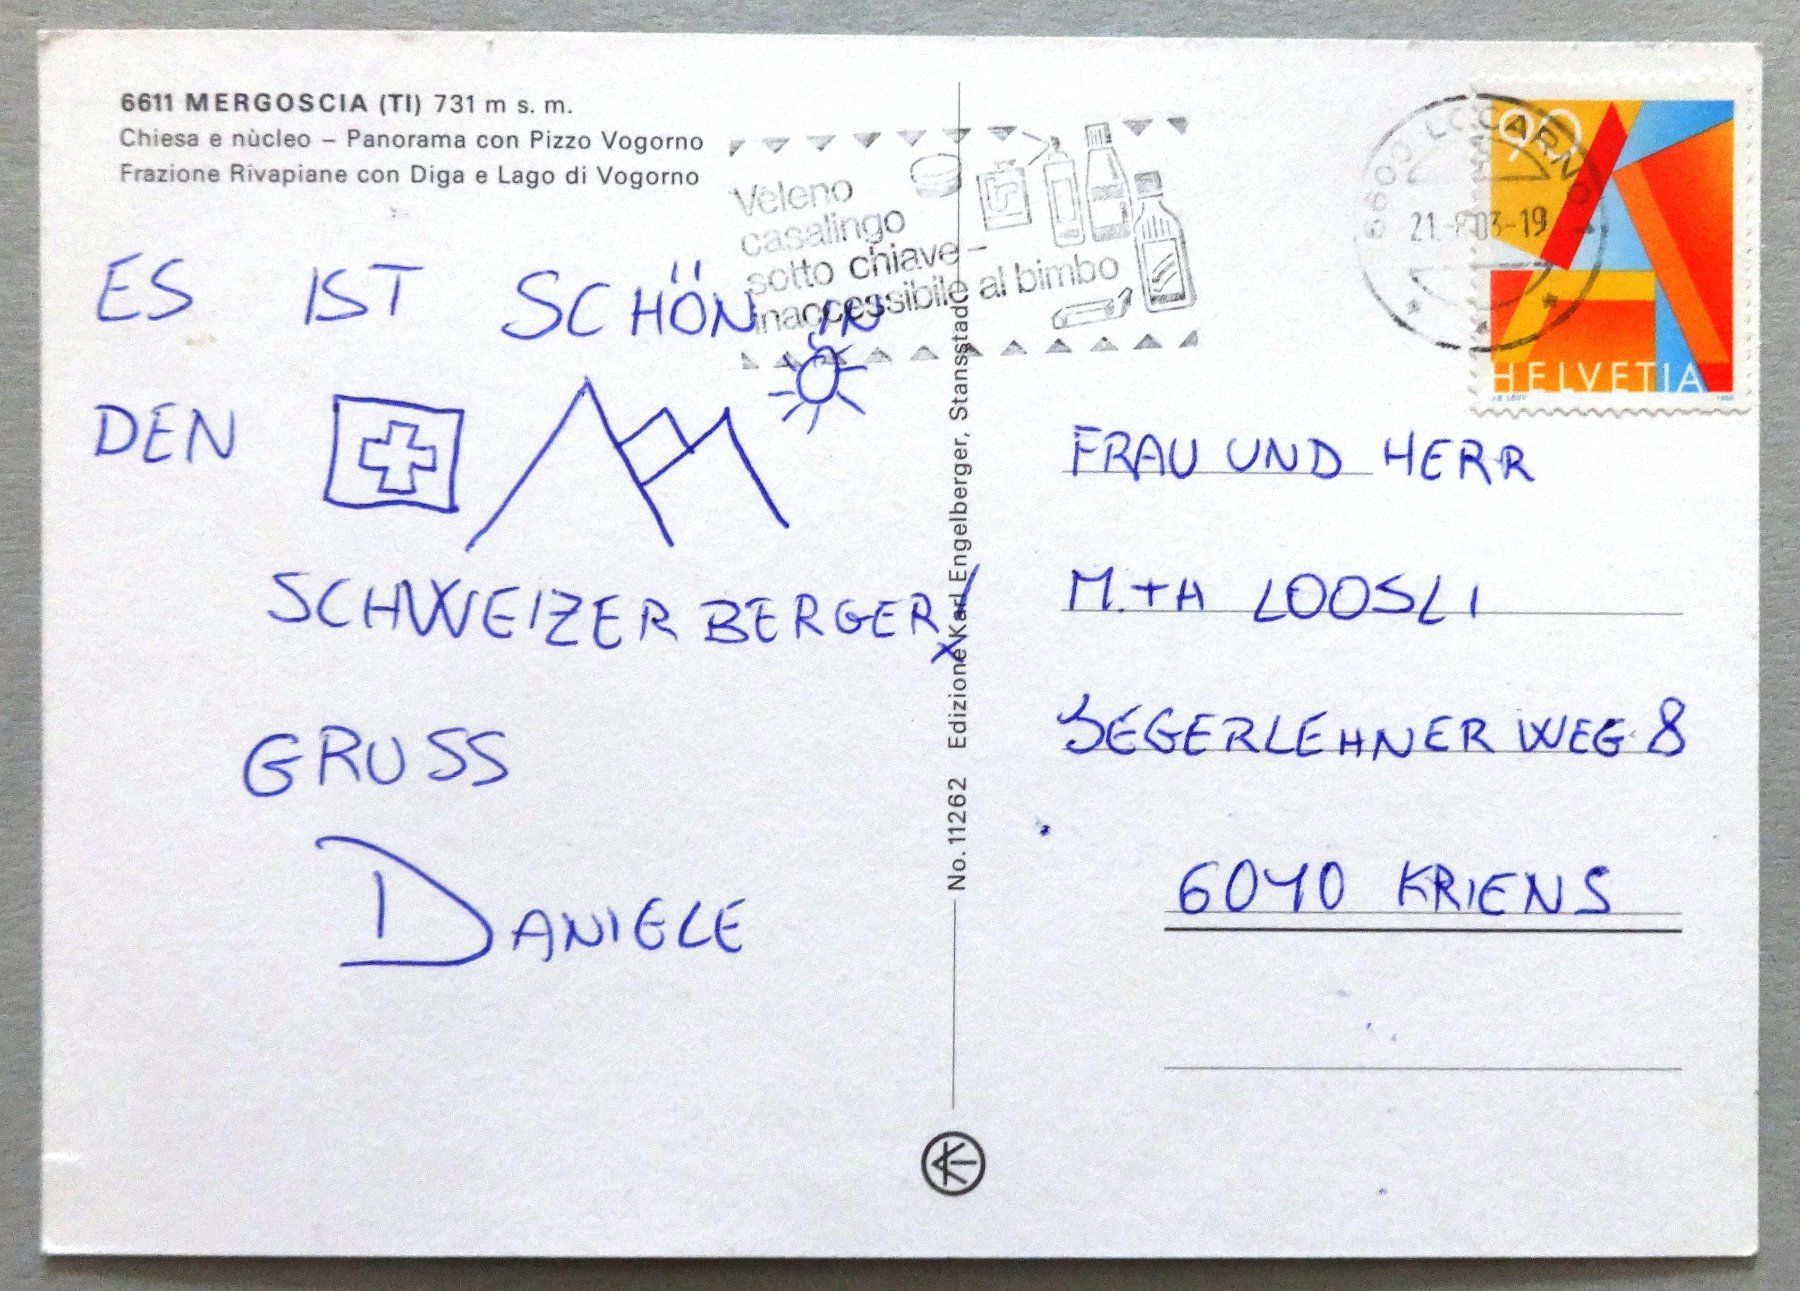 6611 MERGOSCIA (TI) 731 m s. m.
Chiesa e nùcleo – Panorama con Pizzo Vogorno
Frazione Rivapiane con Diga e Lago di Vogorno
Veleno
casalingo
sotto chiave –
inaccessibile al bimbo
6600 LOCARNO
21.-8.03-19
90
HELVETIA
ES IST SCHÖN IN
DEN
SCHWEIZER BERGER!
GRUSS
DANIELE
No. 11262 Edizione Karl Engelberger, Stansstad
FRAU UND HERR
M.+A LOOSLI
SEGERLEHNER WEG 8
6010 KRIENS